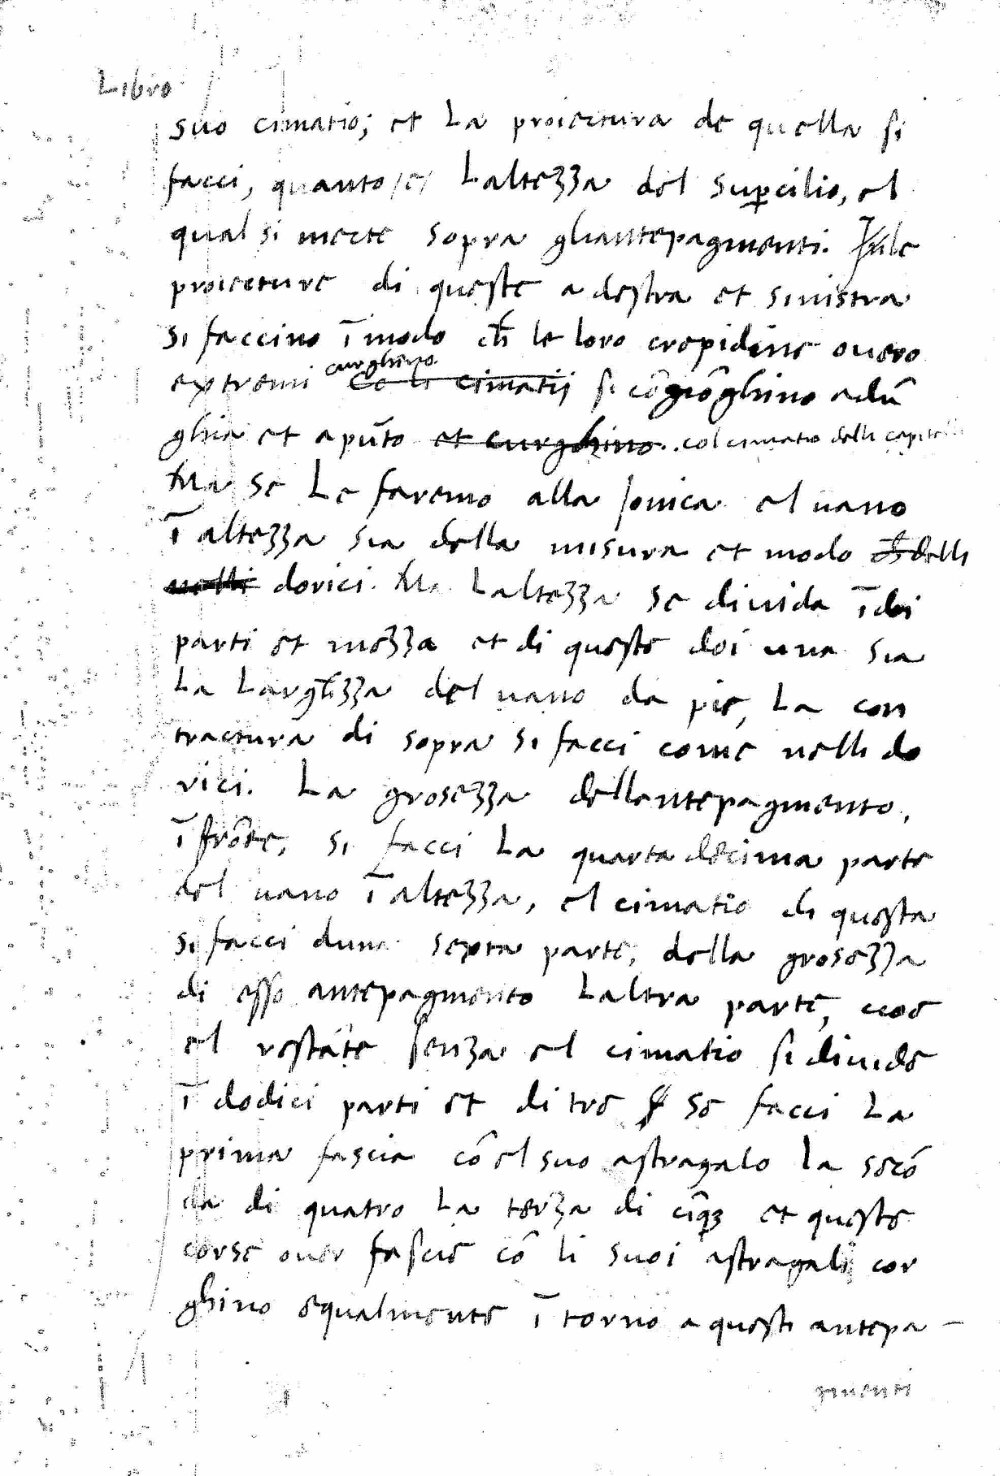 Libro
suo cimatio; et La proiectura de quella si
facci, quanto /e/ Laltezza del sup̱cilio, el
qual si mecte sopra gliantepagmenti. Jn le
proiecture di queste a destra et sinistra
si faccino ī modo ch̄ le loro crepidine overo
curghino
extremi Co li cimatii si cōgiōghino adū
ghia et apūto et curghino col cimatio delli capitelli
Ma se Le faremo alla Jonica el vano
ī altezza sia della misura et modo ch̄ delli
nelli dorici. Ma Laltezza se divida ī doi
parti et mezza et di queste doi una sia
La Largh̄zza del vano da pie, La con
tractura di sopra si facci come nelli do
rici. La grosezza dellantepagmento,
ī frōte, si facci La quarta decima parte
del vano ī altezza, el cimatio di questa
si facci duna sexta parte, della grosezza
di esso antepagmento Laltra parte, cioe
el restāte senza el cimatio si divide
ī dodici parti et di tre se facci La
prima fascia cō el suo astragalo la secō
da di quatro La terza di cīq3 et queste
corse over fascie cō li suoi astragali cor
ghino equalmente ī torno a questi antepa-
gmenti